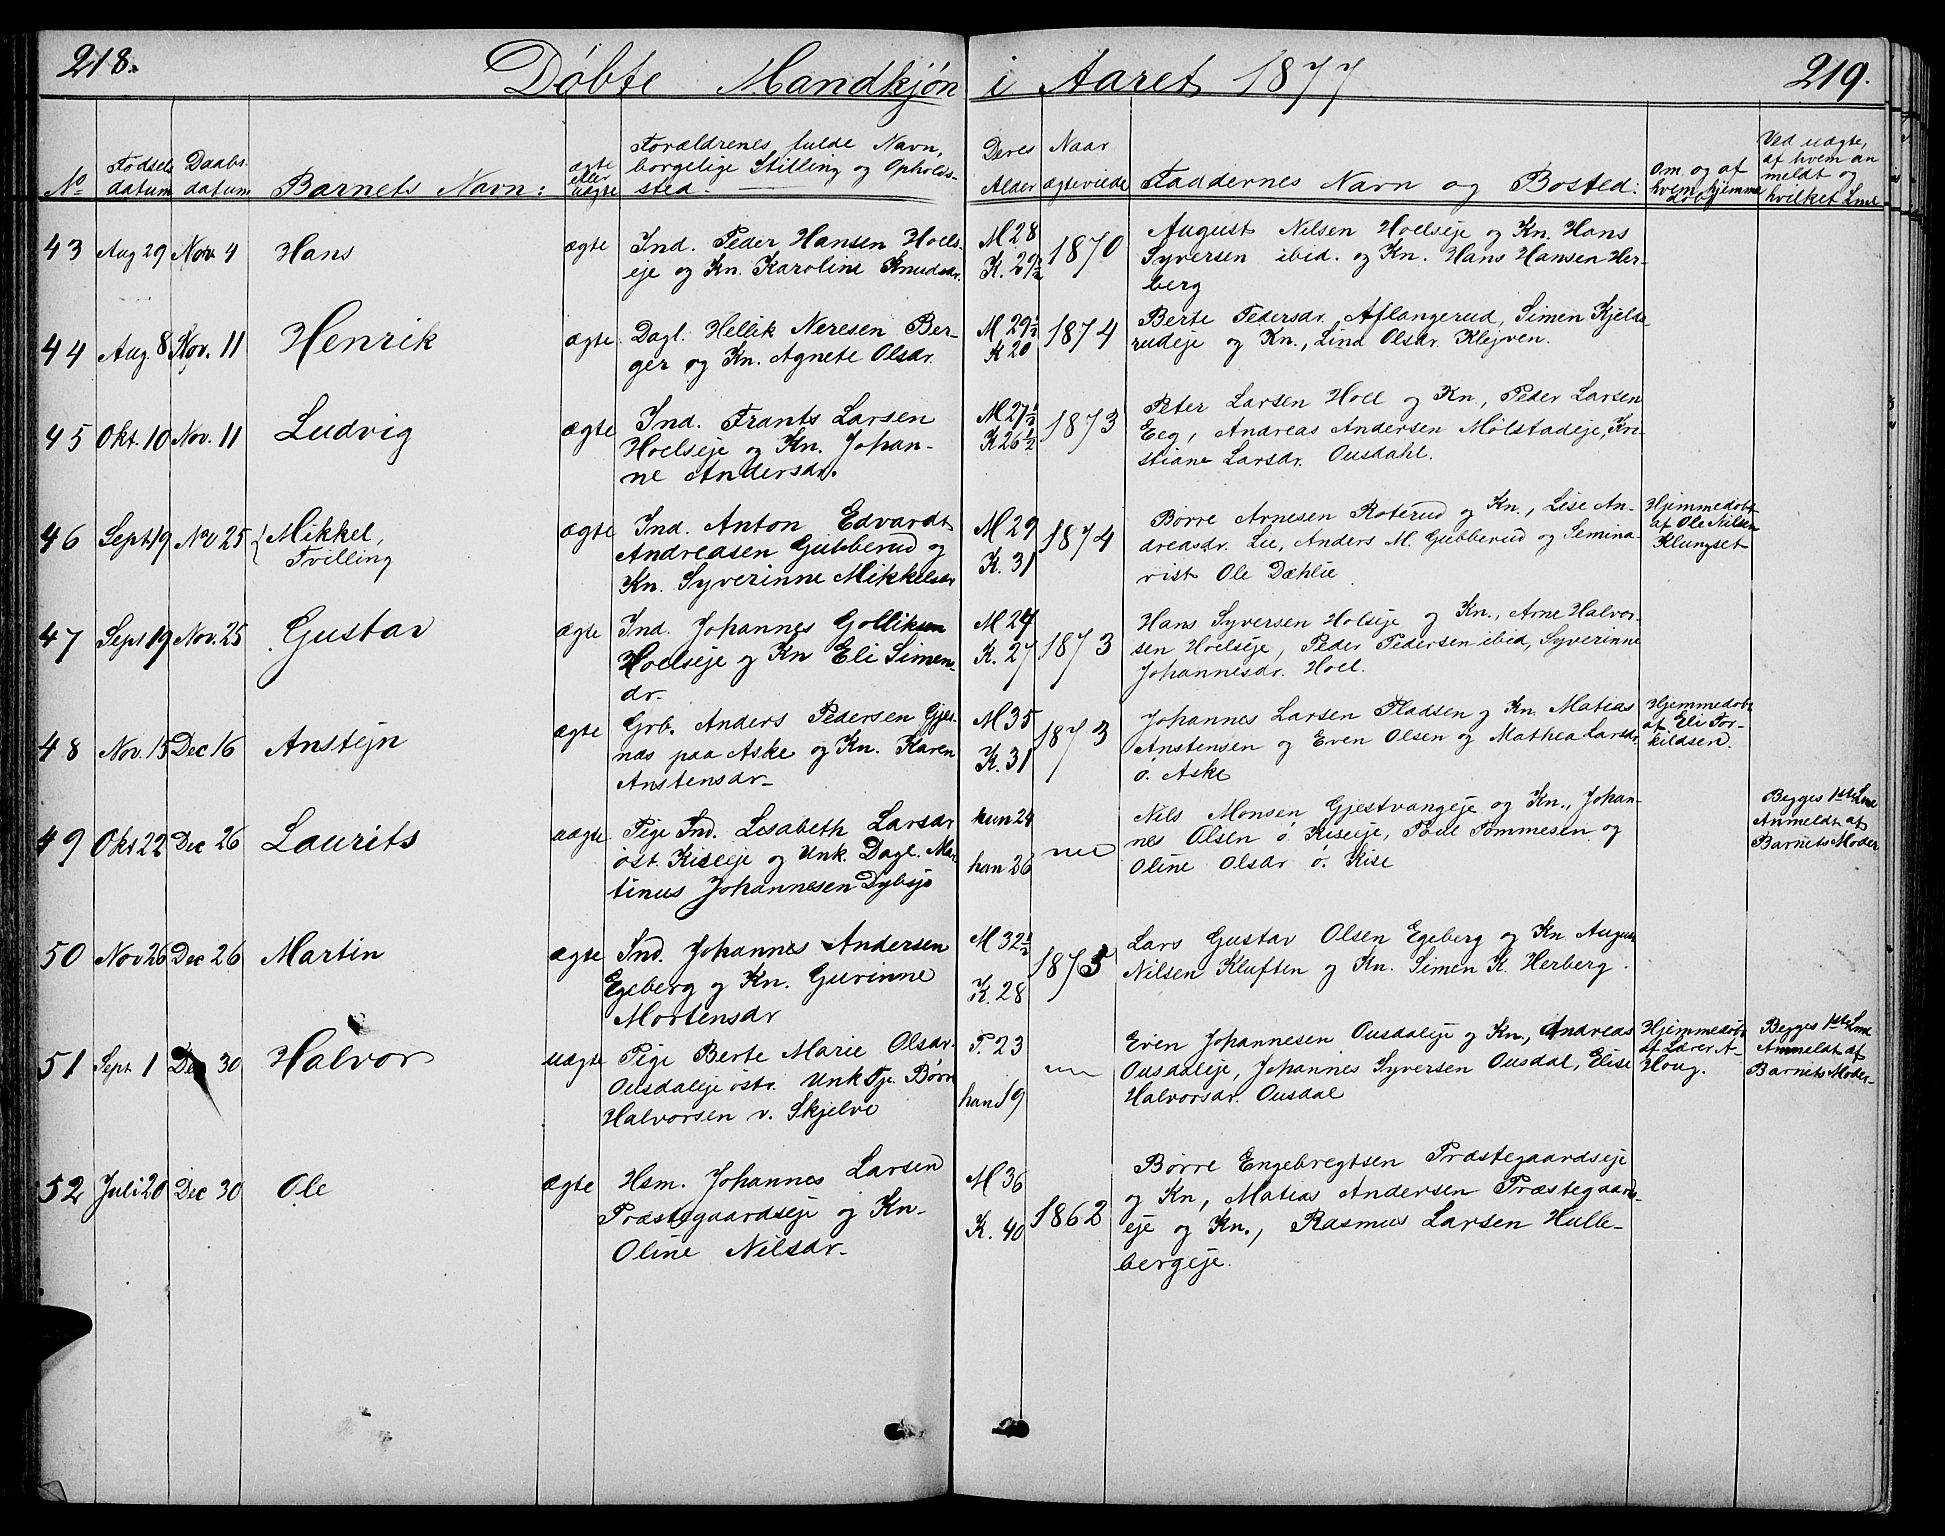 218.
Døbte Mandkjøn i Aaret 1877
219.
No
Fødsels datum
Daabs datum
Barnets Navn:
ægte eller uægte
Forældrenes fulde Navn, borgelige Stilling og Opholdssted
Deres Alder
Naar ægteviede
Faddernes Navn og Bosted:
Om og af hvem hjemmedøbt
Ved uægte, af hvem anmeldt og hvilket Lme
43 Aug 29 Nov 4 Hans ægte
Ind. Peder Hansen Hoels-
eje og Kn. Karoline Knudsdr.
M 28
K. 29½
1870
August Nilsen Hoelseje og Kn. Hans
Syversen ibid. og Kn. Hans Hansen Her-
berg
44 Aug. 8 Nov. 11 Henrik ægte
Dagl. Hellik Neresen Ber-
ger og Kn. Agnete Olsdr.
M 29½
K 20
1874
Berte Pedersdr. Aflangerud, Simen Kjelds
rudeje og Kn., Lina Olsdr. Klejven.
45 Okt. 10 Nov. 11 Ludvig ægte
Ind. Frants Larsen
Hoelseje og Kn. Johan-
ne Andersdr.
M 27½
K 26½
1873
Peter Larsen Hoel og Kn, Peder Larsen
Eeg, Andreas Andersen Mölstadeje, Kri
stiane Larsdr. Ousdahl.
46 Sept 19 Nov 25 Mikkel,
Tvilling
ægte
Ind. Anton Edvardt
Andreasen Gubberud og
Kn. Syverinne Mikkelsdr
M 29
K. 31
1874
Börre Arnesen Roterud og Kn., Lise An-
dreasdr. Lie, Anders M. Gubberud og Semina-
rist Ole Dæhlie
Hjemmedøbt
af Ole Nilsen
Klungset
47 Sept 19 Nov. 25 Gustav ægte
Ind. Johannes Golliksen
Hoelseje og Kn Eli Simens-
dr.
M 24
K. 27
1873
Hans Syversen Holseje og Kn., Arne Halvor-
sen Hoelseje, Peder Pedersen ibid, Syverinne
Johannesdr. Hoel.
48 Nov. 15 Dec 16 Anstejn ægte
Grb. Anders Pedersen Gjes-
nas paa Aske og Kn. Karen
Anstensdr
M 35
K. 31
1873
Johannes Larsen Pladsen og Kn. Matias
Anstensen og Even Olsen og Mathea Larsdr.
ö. Aske
Hjemmedøbt
af Eli Tor-
kildsen.
49 Okt 22 Dec 26 Laurits uægte
Pige Ind. Lisabeth Larsdr
öst. Kiseeje og Unk. Dagl. Mar
tinus Johannesen Dybsjö
hun 24
han 26
nei
Nils Monsen Gjestvangeje og Kn., Johan-
nes Olsen ö. Kiseeje, Poul Pommesen og
Oline Olsdr ö. Kise
Begges 1ste Lme
Anmeldt af
Barnets Moder
50 Nov 26 Dec 26 Martin ægte
Ind. Johannes Andersen
Egeberg og Kn. Gurinne
Mortensdr
M 32½
K. 28
1875
Lars Gustav Olsen Egeberg og Kn August
Nilsen Kluften og Kn. Simen K. Herberg.
51 Sept 1 Dec 30 Halvor uægte
Pige Berte Marie Olsdr.
Ousdaleje östr. Unk Tje. Börre
Halvorsen v. Skjelve
P. 23
han 19
nei
Even Johannesen Ousdaleje og Kn., Andreas
Ousdaleje, Johannes Syversen Ousdal, Elise
Halvorsdr. Ousdal
Hjemmedøbt
af Lærer A-
Houg.
Begges 1ste Lme
Anmeldt af
Barnets Moder-
52 Juli 20 Dec 30 Ole ægte
Hsm. Johannes Larsen
Præstegaardseje og Kn-
Oline Nilsdr.
M 36
K. 40
1862
Börre Engebregtsen Præstegaardseje
og Kn, Matias Andersen Præstegaards-
eje og Kn., Rasmus Larsen Hulle-
bergeje.